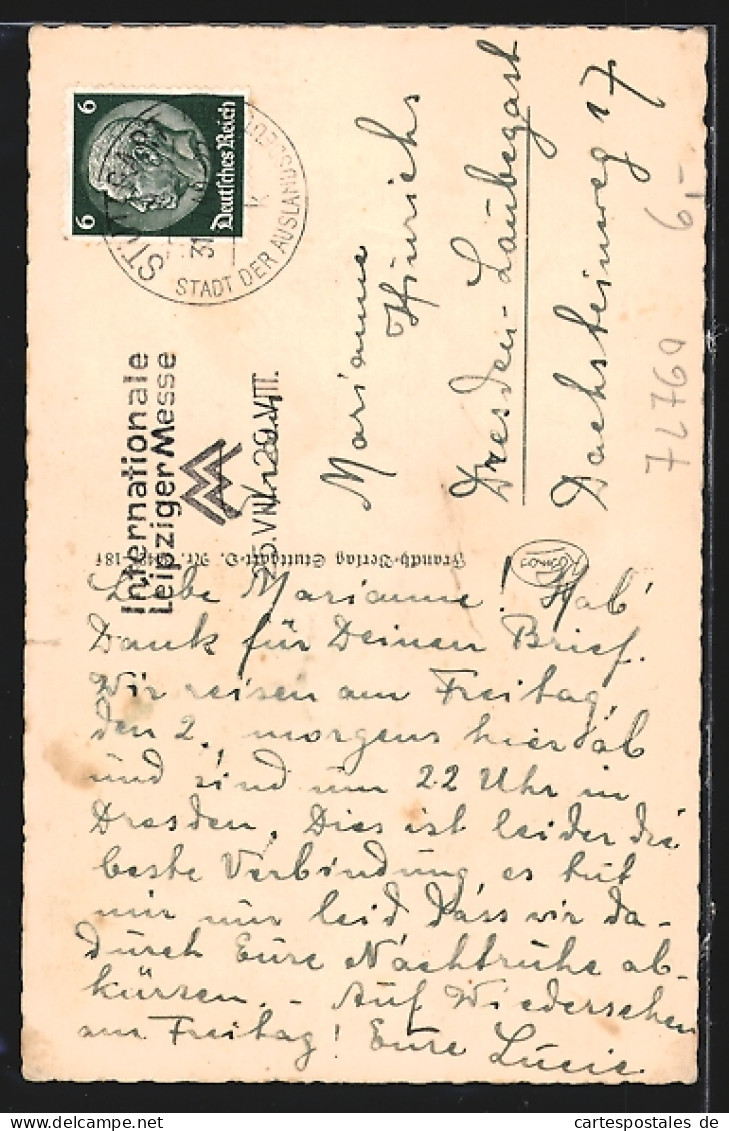 6
6
Deutsches Reich
STUTTGART
31
STADT DER AUSLANDSDEUTSCHEN
k
Internationale
Leipziger Messe
29.VIII.
Marianne
Hinrichs
Dresden-Laubegast
Dachsteinweg 17
6,-
72760
Franckh-Verlag Stuttgart-O. Nr.
Kosmos
Liebe Marianne! Hab'
Dank für Deinen Brief.
Wir reisen am Freitag,
den 2., morgens hier ab
und sind um 22 Uhr in
Dresden. Dies ist leider die
beste Verbindung, es tut
mir nur leid dass wir da-
durch Eure Nachtruhe ab-
kürzen. - Auf Wiedersehen
am Freitag! Eure Lucie.
cartespostales de